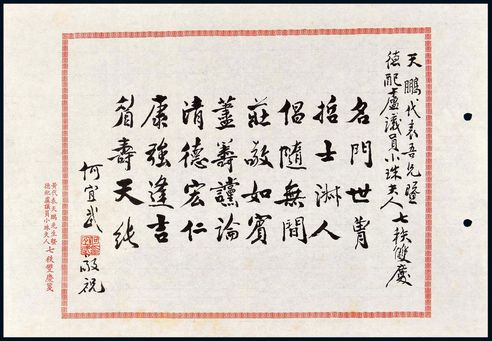 天鵬代表吾兄暨
德配盧議員小珠夫人七秩雙慶
名門世胄
哲士淑人
倡隨無間
莊敬如賓
藎籌讜論
清德宏仁
康強逢吉
眉壽天純
何宜武
敬祝
黃代表天鵬先生暨
德配盧議員小珠夫人
七秩雙慶箋